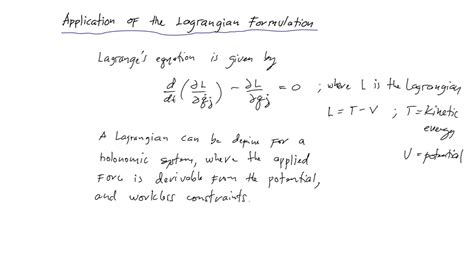 Application of the Lagrangian Formulation
Lagrange's equation is given by
d/dt (∂L/∂q̇j) - ∂L/∂qj = 0 ; where L is the Lagrangian
L = T - V ; T = kinetic
energy
U = potential
A Lagrangian can be define for a
holonomic system, where the applied
force is derivable from the potential,
and workless constraints.